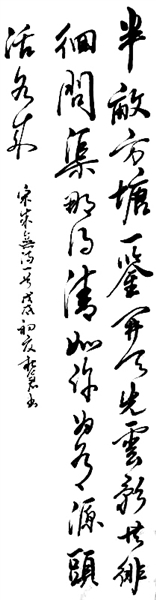 半畝方塘一鑒開天光雲影共徘
徊問渠那得清如許為有源頭
活水來
宋朱熹詩一首戊戌初夏書